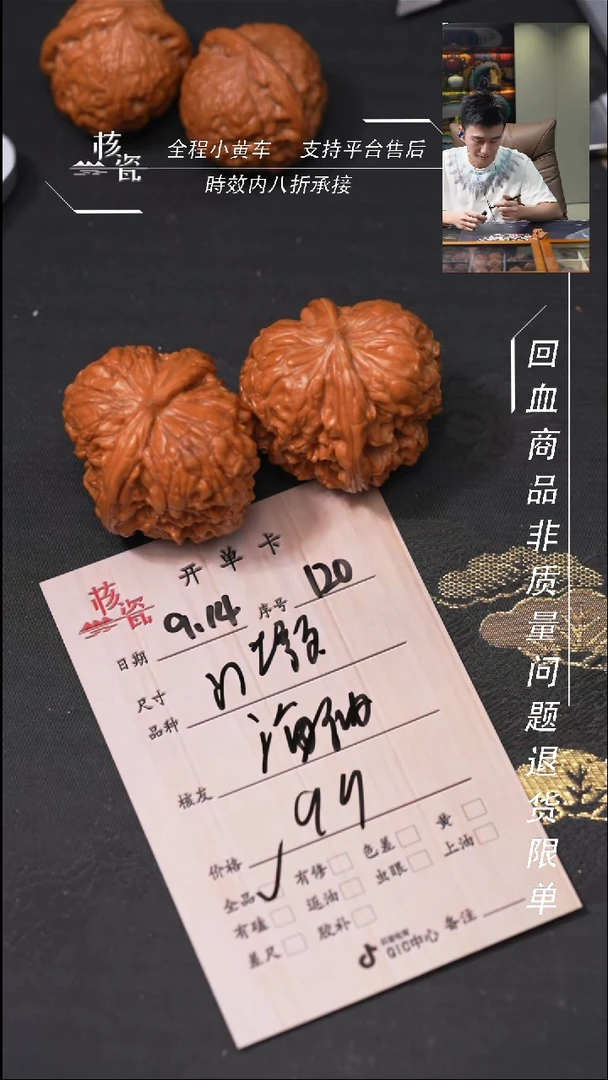 核瓷
全程小黄车 支持平台售后
時效内八折承接
回血商品非质量问题退货限单
开单卡
核瓷
日期 9.14 序号 120
尺寸
品种
核友
价格
全品 ✓ 有修 色差 黄
有磕 返油 虫眼 上油
差尺 胶补 QIC中心 备注